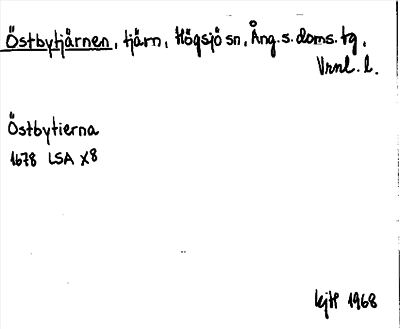 Östbytjärnen, tjärn, Högsjö sn, Ång. s. doms. tg,
Vrnl. l.
Östbytierna
1678 LSA X8
kjtP 1968